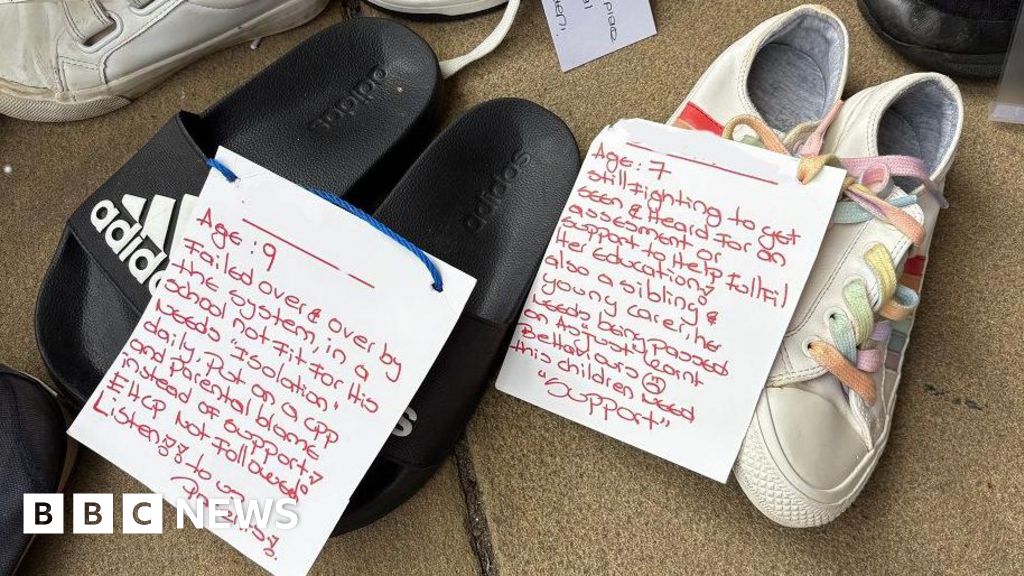 adidas
adidas
adidas
Age : 9
Failed over & over by
the system, in a
school not fit for His
needs "Isolation"
daily. Put on a cpp
and Parental blame
instead of support?
EHCP Not followed
Listen to
Age : 7
still fighting to get
seen & Heard for an
assesment or
support to Help FullFil
Her Education?
also a sibling &
young carer, her
needs being passed
on As "Just" learnt
Behaviors ☹
this children need
"Support"
BBC NEWS